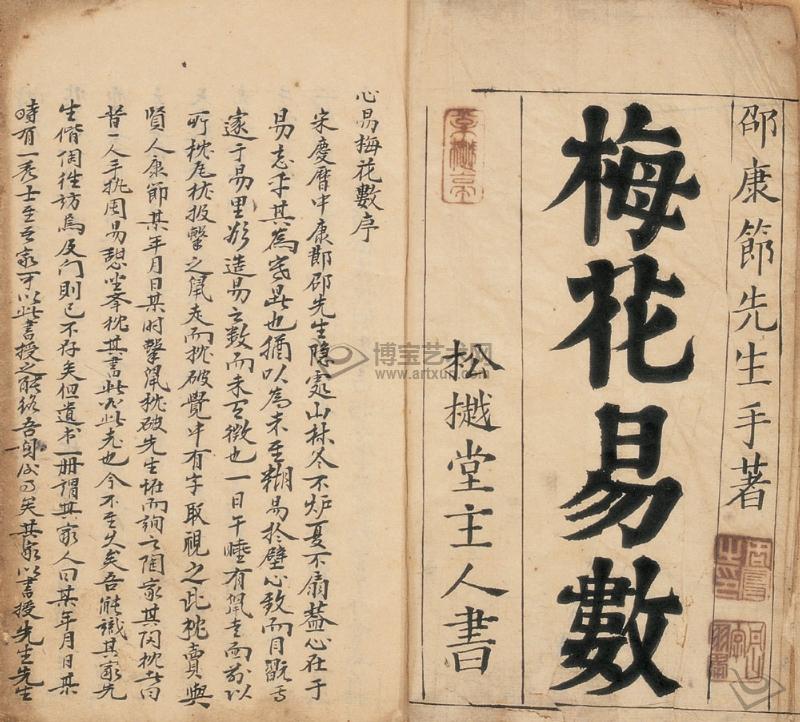 邵康節先生手著
梅花易數
松樾堂主人書
心易梅花數序
宋慶曆中康節邵先生隐處山林冬不炉夏不扇蓋心在于
易忘乎其為寒暑也猶以為未至糊易於壁心致而目翫焉
邃于易里欲造易之数而未有徵也一日午睡有鼠走而前以
所枕瓦枕投擊之鼠走而枕破覺中有字取視之此枕賣與
賢人康節某年月日某時擊鼠枕破先生怪而詢之陶家其陶枕者曰
昔一人手执周易憩坐举枕其書必此老也今不至久矣吾能識其家先
生偕陶往訪焉及門則已不存矣但遺书一册謂其家人曰某年月日某
時有一秀士至吾家可以此書授之能终吾身後事矣其家以書授先生先生
博宝艺术网
www.artxun.com